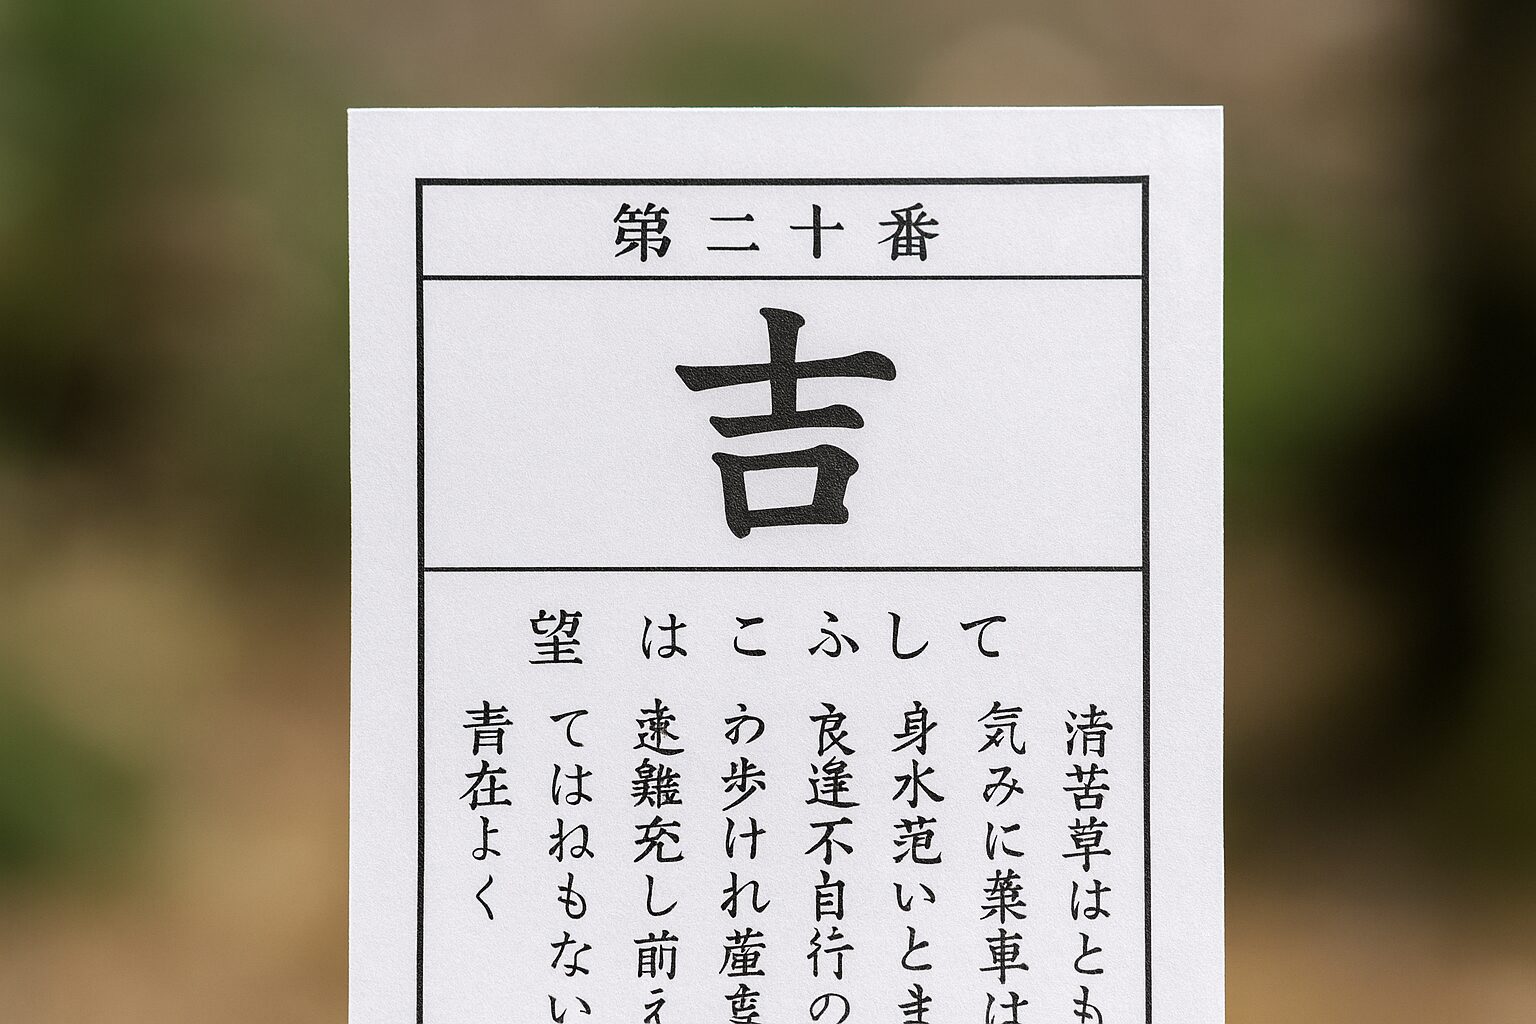 第二十番
吉
望はこふして
清苦草はとも
気みに葉車は
身水范いとま
良逢不自行の
わ歩けれ
遠難充し前え
てはねもない
青在よく